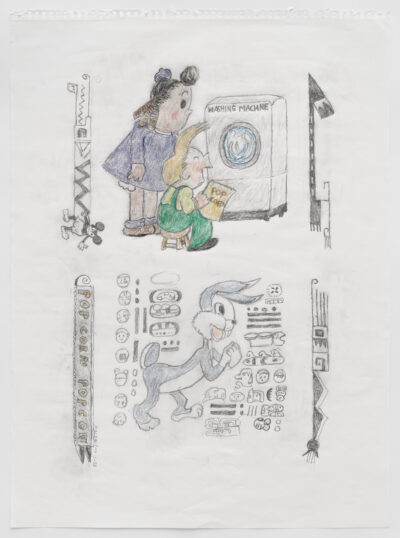 WASHING MACHINE
POP
CORN
POP CORN POP CORN